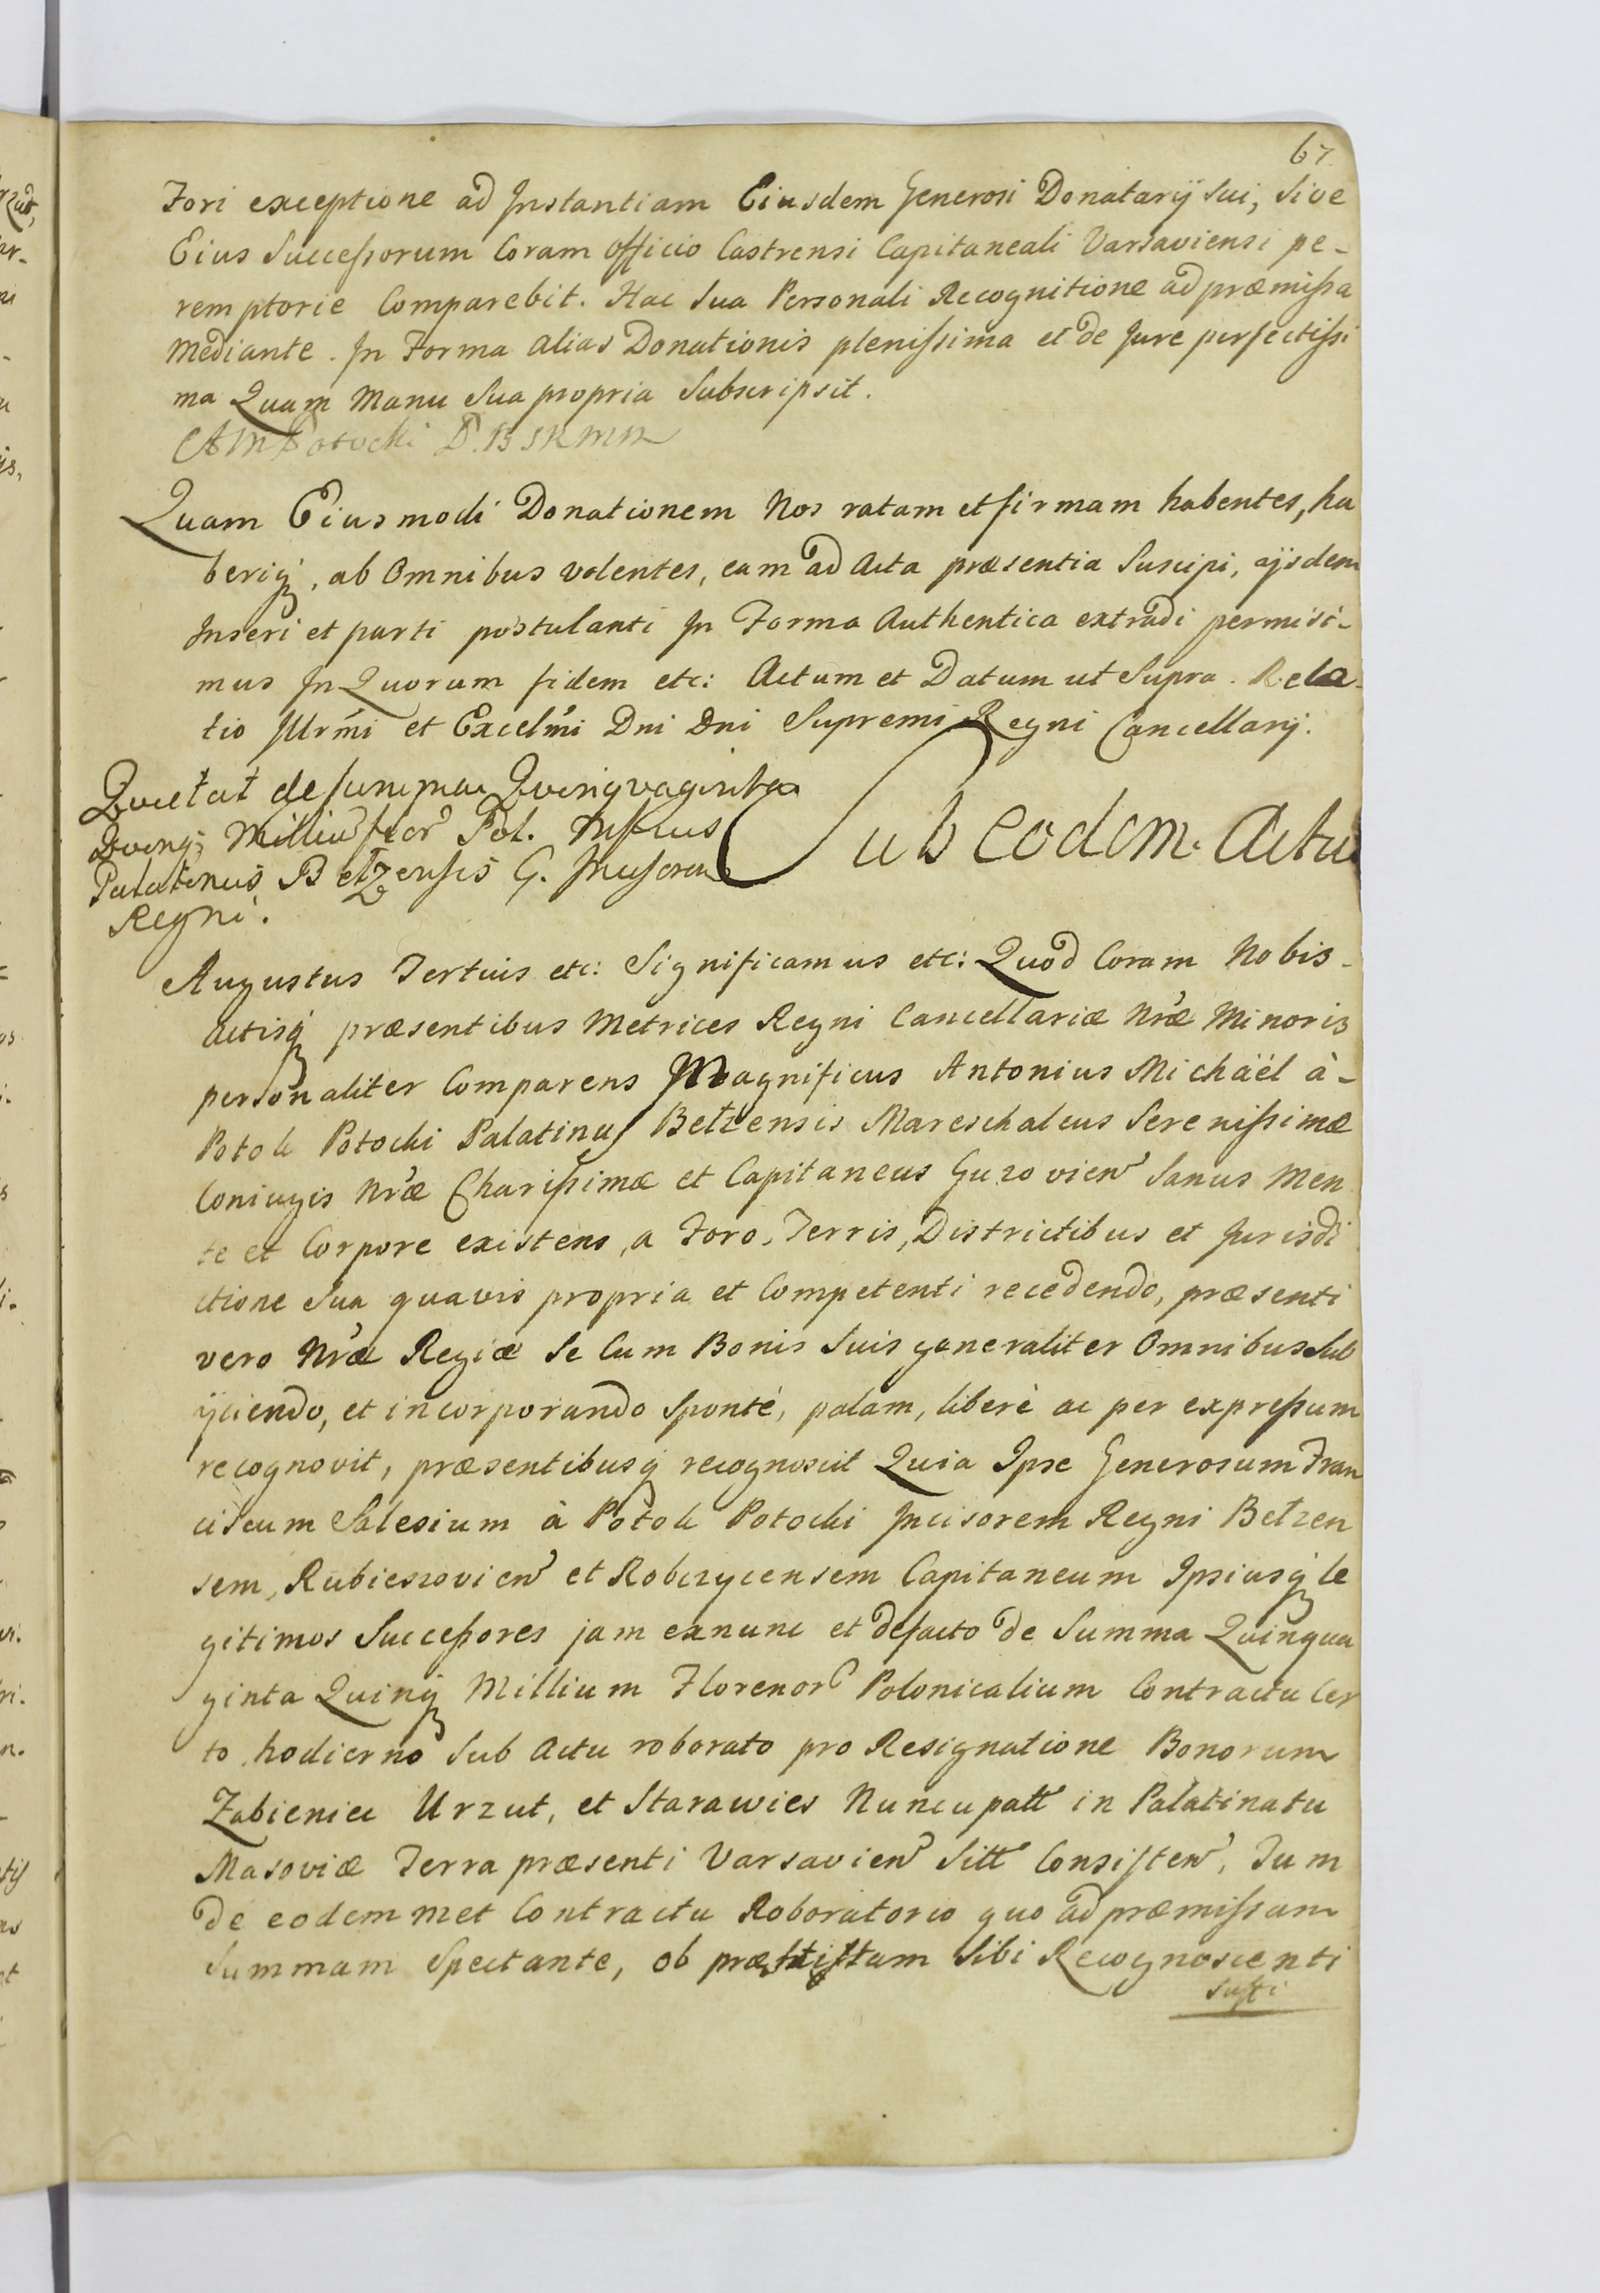 67.
Fori exceptione ad Instantiam Eiusdem Generosi Donatarij sui, sive
Eius Successorum Coram Officio Castrensi Capitaneali Varsaviensi pe-
remptorie Comparebit. Hac sua Personali Recognitione ad præmissa
mediante. In Forma alias Donationis plenissima et de Jure perfectissi
ma Quam Manu sua propria subscripsit.
AM Potocki
Quam Eiusmodi Donationem Nos ratam et firmam habentes, ha
beriq, ab Omnibus volentes, eam ad Acta præsentia Suscipi, ijsdem
Inseri et parti postulanti In Forma Authentica extradi permisi-
mus In Quorum fidem etc: Actum et Datum ut Supra. Rela-
tio Illrmi et Excelmi Dni Dni Supremi Regni Cancellarij.
Quietat de summa Quinquaginta
Quinq Milliu flor Pol. Mficus
Palatinus Betzensis G. Incisorem
Regni.
Sub eodem Actu
Augustus Tertius etc: Significamus etc: Quod Coram Nobis-
Actisq præsentibus Metrices Regni Cancellariæ Nræ Minoris
personaliter Comparens Magnificus Antonius Michäél à-
Potok Potocki Palatinus Betzensis Mareschalcus Serenissimæ
Coniugis Nræ Charissimæ et Capitaneus Guzovien Sanus Men
te et Corpore existens, a Foro, Terris, Districtibus et Jurisdi
ctione sua quavis propria et Competenti recedendo, præsenti
vero Nræ Regiæ se Cum Bonis suis generaliter Omnibus sub
ijciendo, et incorporando sponté, palam, liberè ac per expressum
recognovit, præsentibusq recognoscit Quia Ipse Generosum Fran
ciscum Salesium à Potok Potocki Incisorem Regni Betzen
sem, Rubieszovien et Robczycensem Capitaneum Ipsiusq le
gitimos Successores jam exnunc et defacto de Summa Quinqua
ginta Quinq Millium Florenor Polonicalium Contractu Cer
to hodierno sub Actu roborato pro Resignatione Bonorum
Zabieniec Urzut, et Starawies Nuncupatt in Palatinatu
Masoviæ Terra præsenti Varsavien Sitt Consisten, Tum
De eodemmet Contractu Roboratorio quo ad præmissam
Summam Spectante, ob Sibi Recognoscenti